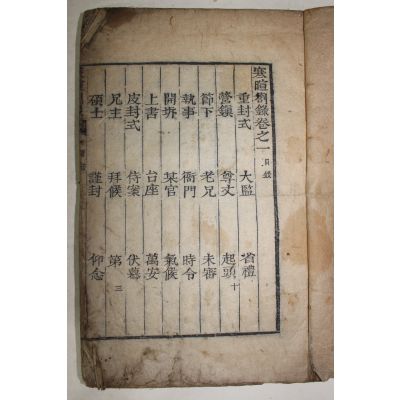 寒暄箚錄卷之一 目錄
重封式 大監 省禮
營鎭 尊丈 起頭 十
節下 老兄 未審
執事 衙門 時令
開坼 某官 氣候
上書 台座 萬安
皮封式 侍案 伏慕
兄主 拜候 第 三
碩士 謹封 仰念